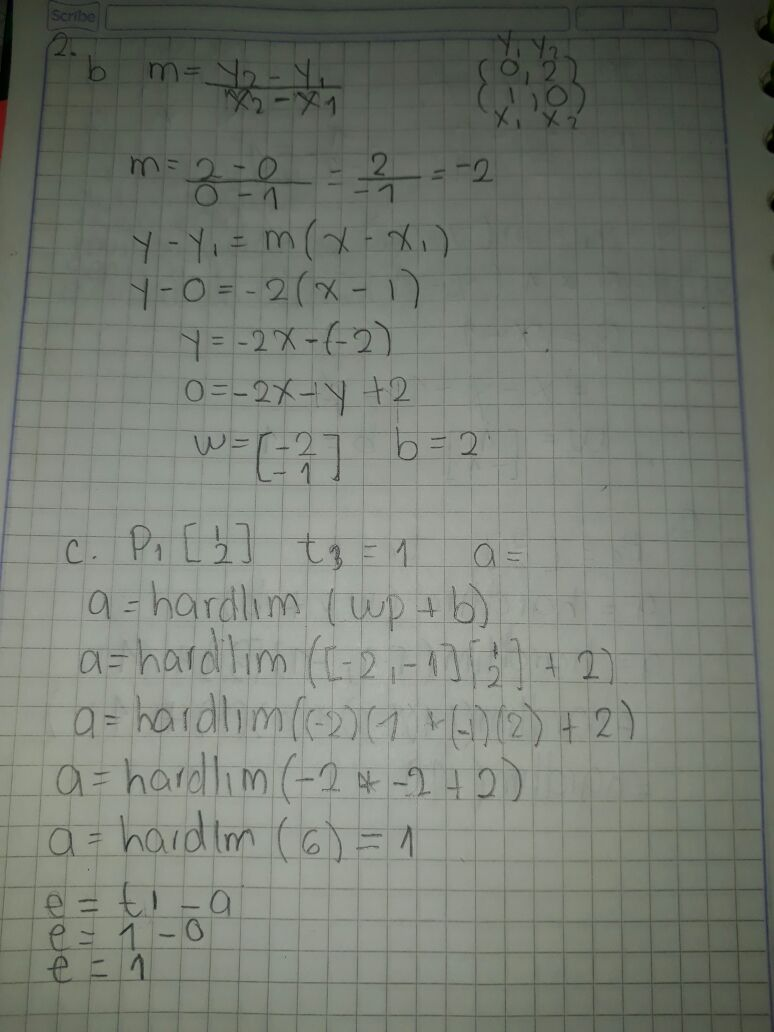 Scribe
2.
b m = y2 - y1 / x2 - x1
y1 y2
(0, 2)
(1, 0)
x1 x2
m = 2 - 0 / 0 - 1 = 2 / -1 = -2
y - y1 = m(x - x1)
y - 0 = -2(x - 1)
y = -2x - (-2)
0 = -2x - y + 2
w = [-2 -1] b = 2
c. P1 [1 2] t3 = 1 a =
a = hardlim (wp + b)
a = hardlim ([-2, -1][1 2] + 2)
a = hardlim((-2)(1 * (-1)(2) + 2)
a = hardlim(-2 * -2 + 2)
a = hardlm (6) = 1
e = t1 - a
e = 1 - 0
e = 1